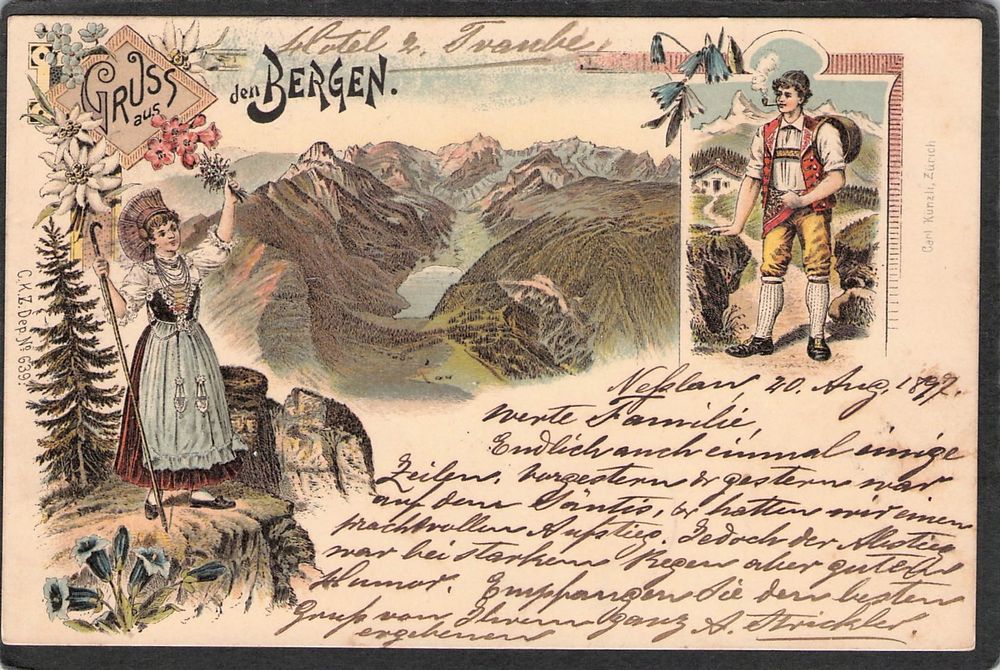 Hotel z. Traube,
Gruss
aus
den Bergen.
Carl Künzli, Zürich
C.K.Z. Dep. No 639.
Neßlau, 20. Aug. 1897.
werte Familie,
Endlich auch einmal einige
Zeilen. Vorgestern & gestern war
auf dem Säntis, & hatten wir einen
prachtvollen Aufstieg. Jedoch der Abstieg
war bei starkem Regen aber guter
Humor. Empfangen Sie den besten
Gruß von Ihrem ganz A. Strickler
ergebenen